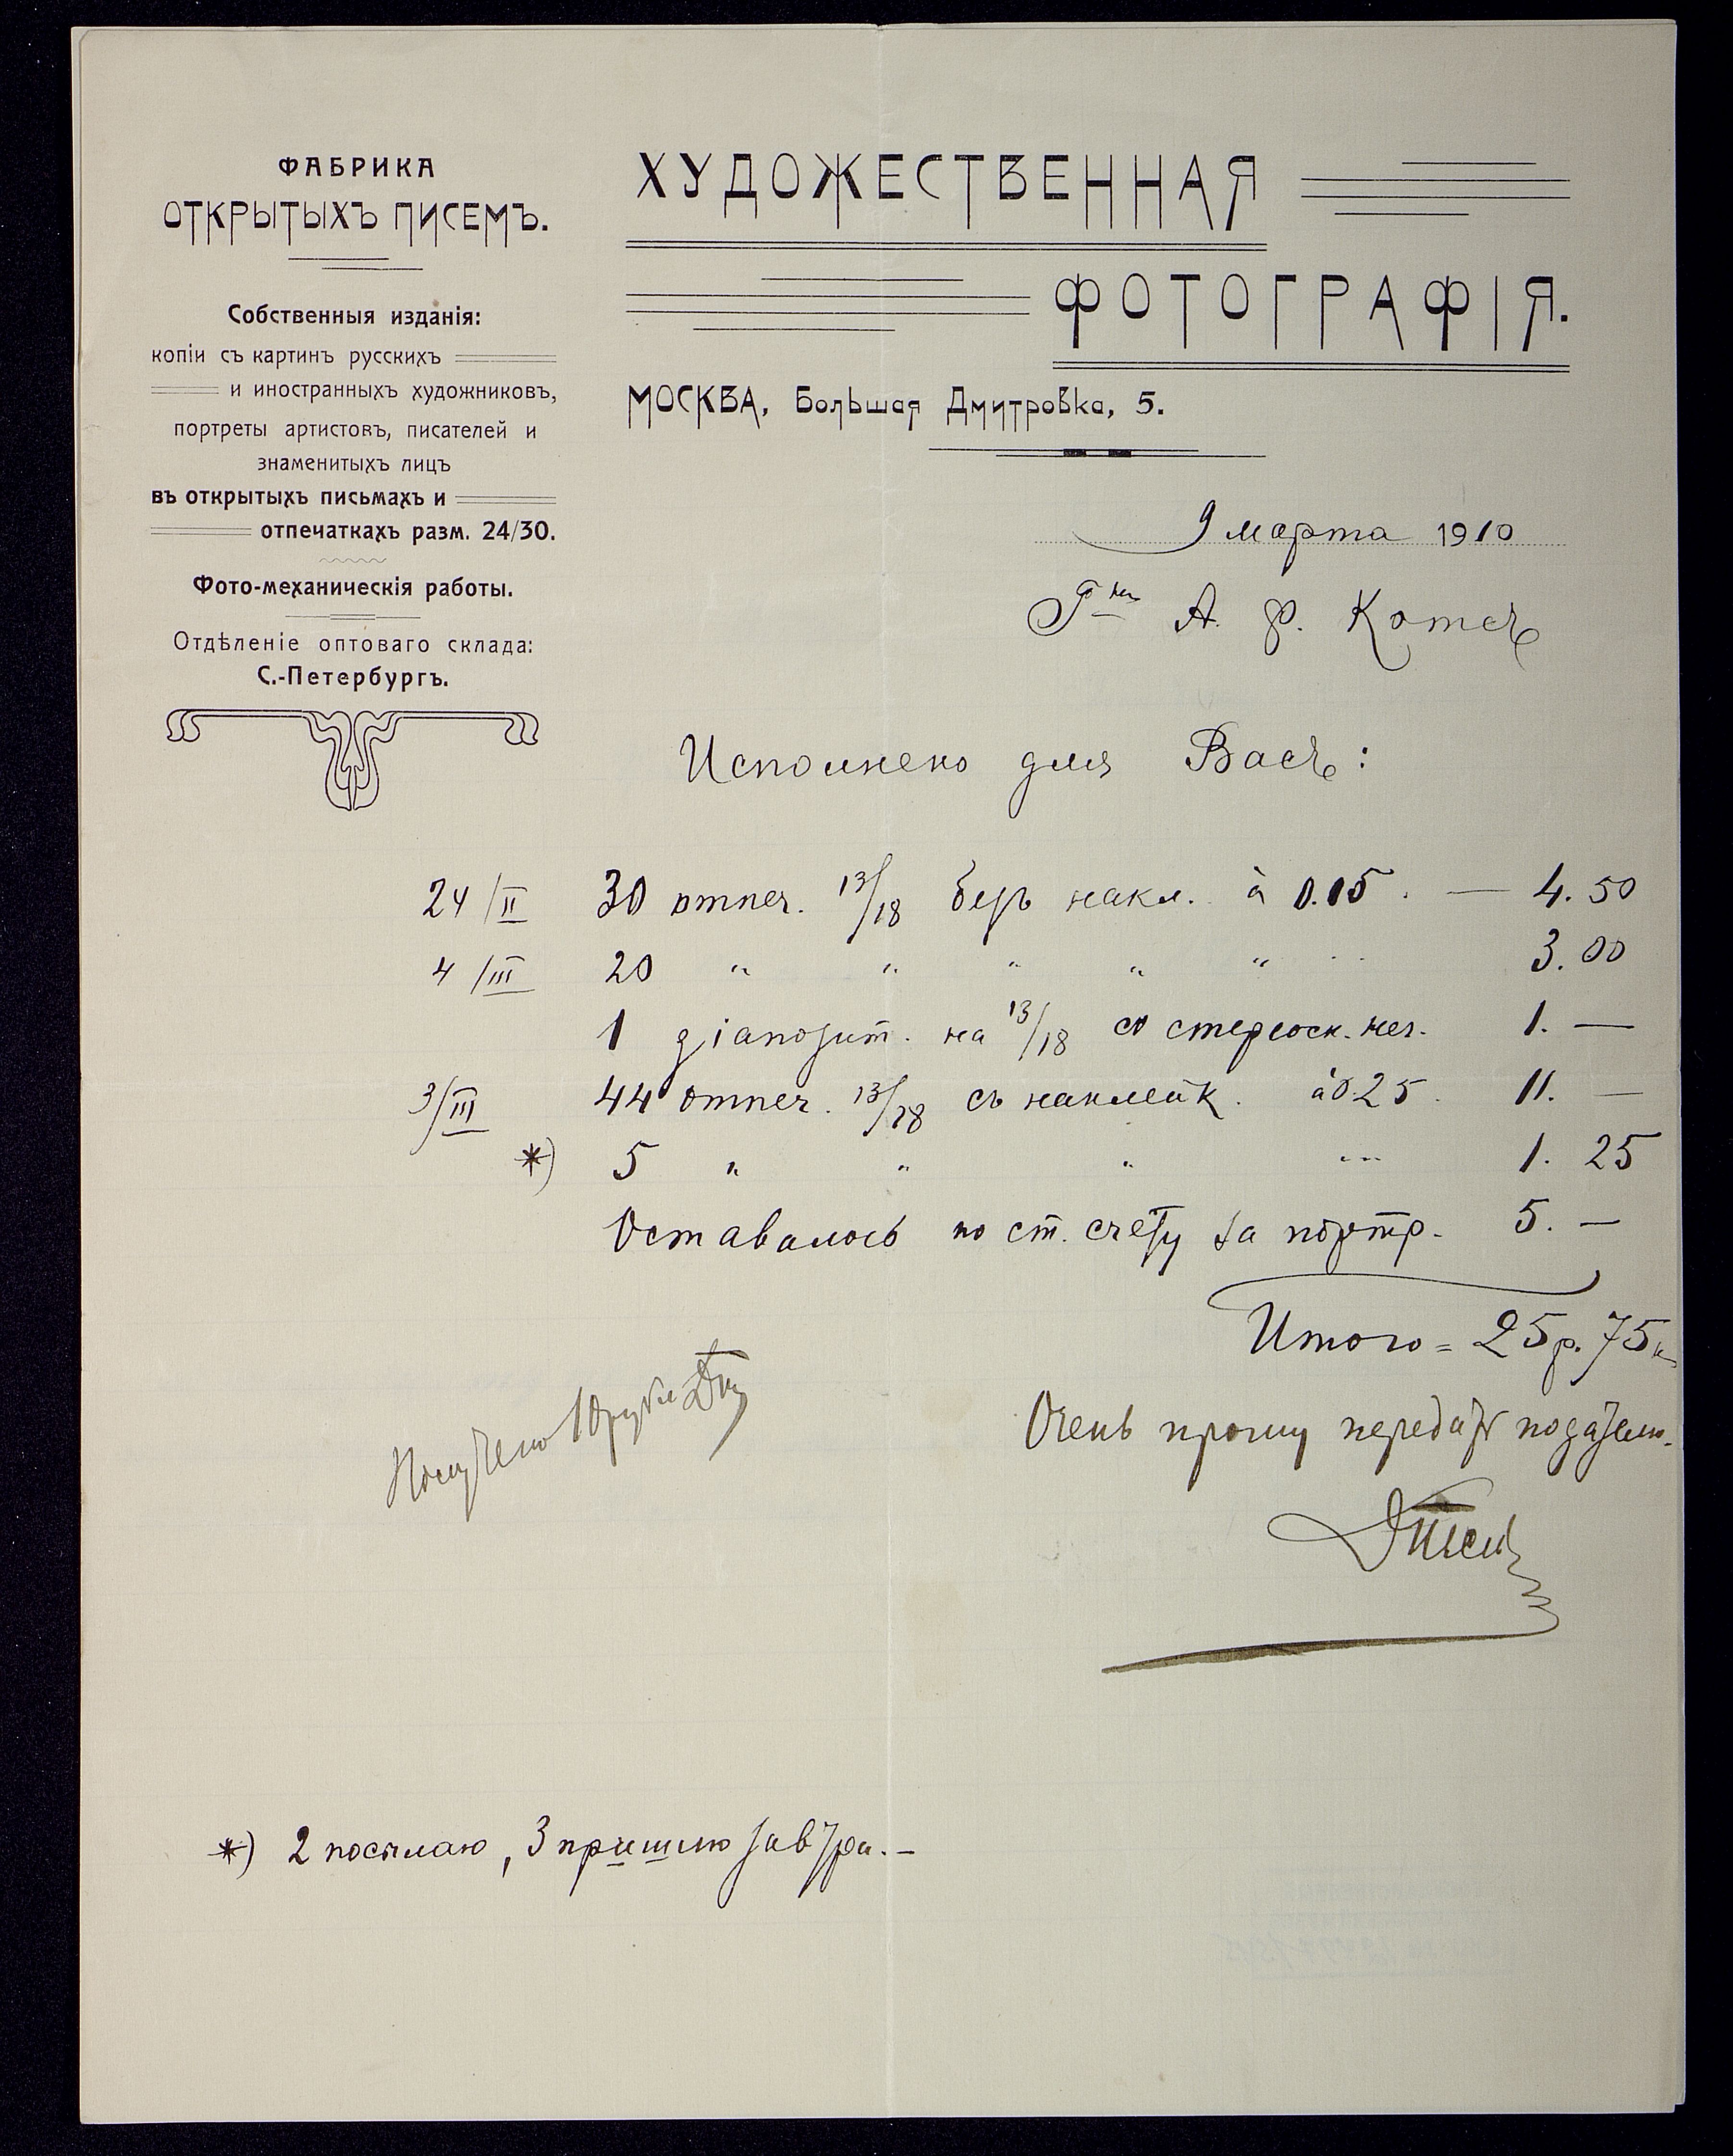 ФАБРИКА
ОТКРЫТЫХЪ ПИСЕМЪ.
Собственныя изданія:
копіи съ картинъ русскихъ
и иностранныхъ художниковъ,
портреты артистовъ, писателей и
знаменитыхъ лицъ
въ открытыхъ письмахъ и
отпечаткахъ разм. 24/30.
Фото-механическія работы.
Отдѣленіе оптоваго склада:
С.-Петербургъ.
ХУДОЖЕСТВЕННАЯ
ФОТОГРАФІЯ.
МОСКВА, Большая Дмитровка, 5.
9 марта 1910
А. Ф. Котсъ
Исполнено для Васъ:
24/II 30 отпеч. 13/18 безъ накл. à 0.15. — 4.50
4/III 20 " " " " " 3.00
1 діапозит. на 13/18 со стереоск. нег. 1. —
3/III 44 отпеч. 13/18 съ наклейк. à 0.25. 11. —
*) 5 " " " " 1. 25
Оставалось по ст. счету за портр. 5. —
Итого = 25р. 75к
Очень прошу передать подателю.
Получено 10 рубл
*) 2 посылаю, 3 пришлю завтра. –